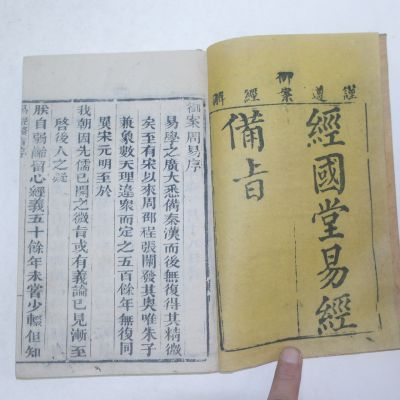 謹遵御案經解
經國堂易經
備旨
御案周易序
易學之廣大悉備秦漢而後無復得其精微
矣至有宋以來周邵程張闡發其奧唯朱子
兼象數天理違衆而定之五百餘年無復同
異宋元明至於
我朝因先儒已開之微旨或有義論已見漸至
啓後人之疑
朕自弱齡留心經義五十餘年未嘗少輟但知